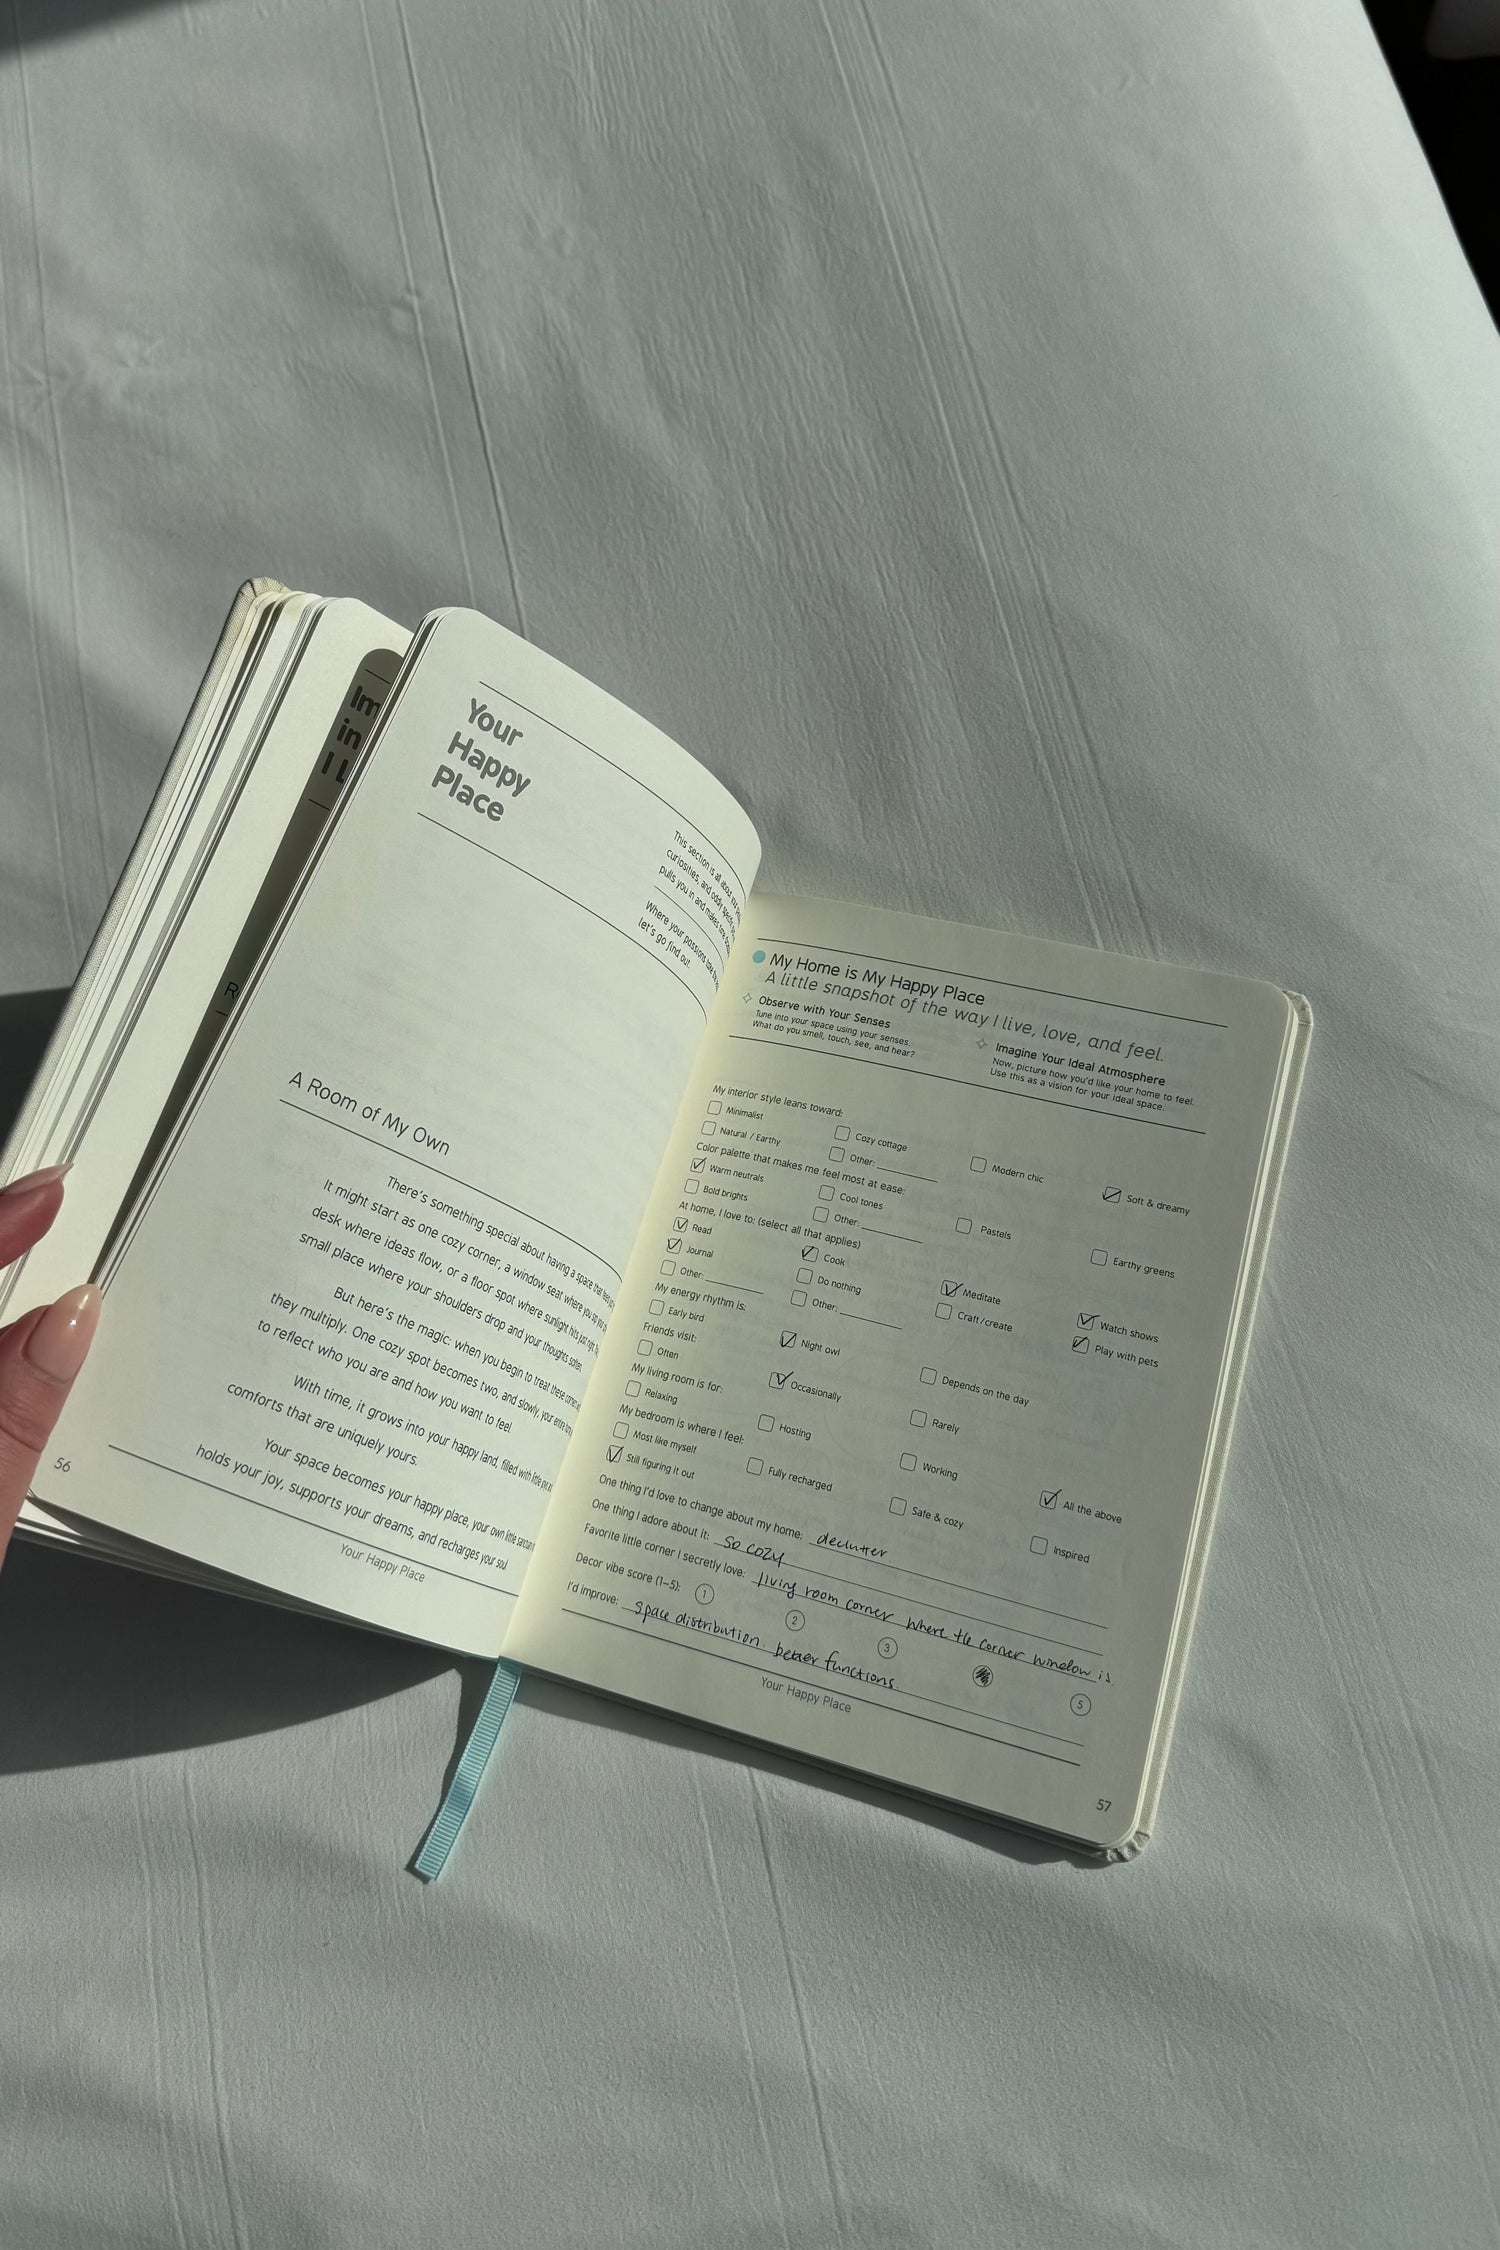 Im
in
I L
R
Your
Happy
Place
This section is all about
curiosities, and oddly
pulls you in and makes
Where your passions
let's go find out.
A Room of My Own
There's something special about having a space that
It might start as one cozy corner, a window seat where you
desk where ideas flow, or a floor spot where sunlight hits just right.
small place where your shoulders drop and your thoughts soften.
But here's the magic: when you begin to treat these
they multiply. One cozy spot becomes two, and slowly, your entire
to reflect who you are and how you want to feel.
With time, it grows into your happy land, filled with little
comforts that are uniquely yours.
Your space becomes your happy place, your own little
holds your joy, supports your dreams, and recharges your soul.
Your Happy Place
56
My Home is My Happy Place
A little snapshot of the way I live, love, and feel.
Observe with Your Senses
Tune into your space using your senses.
What do you smell, touch, see, and hear?
Imagine Your Ideal Atmosphere
Now, picture how you'd like your home to feel.
Use this as a vision for your ideal space.
My interior style leans toward:
Minimalist Cozy cottage Modern chic Soft & dreamy
Natural / Earthy Other:
Color palette that makes me feel most at ease:
Warm neutrals Cool tones Pastels Earthy greens
Bold brights Other:
At home, I love to: (select all that applies)
Read Cook Meditate Watch shows
Journal Do nothing Craft/create Play with pets
Other: Other:
My energy rhythm is:
Early bird Night owl Depends on the day
Friends visit:
Often Occasionally Rarely
My living room is for:
Relaxing Hosting Working All the above
My bedroom is where I feel:
Most like myself Fully recharged Safe & cozy Inspired
Still figuring it out
One thing I'd love to change about my home: declutter
One thing I adore about it: so cozy
Favorite little corner I secretly love: living room corner where the corner window is.
Decor vibe score (1–5): 1 2 3 5
I'd improve: space distribution. better functions.
Your Happy Place
57